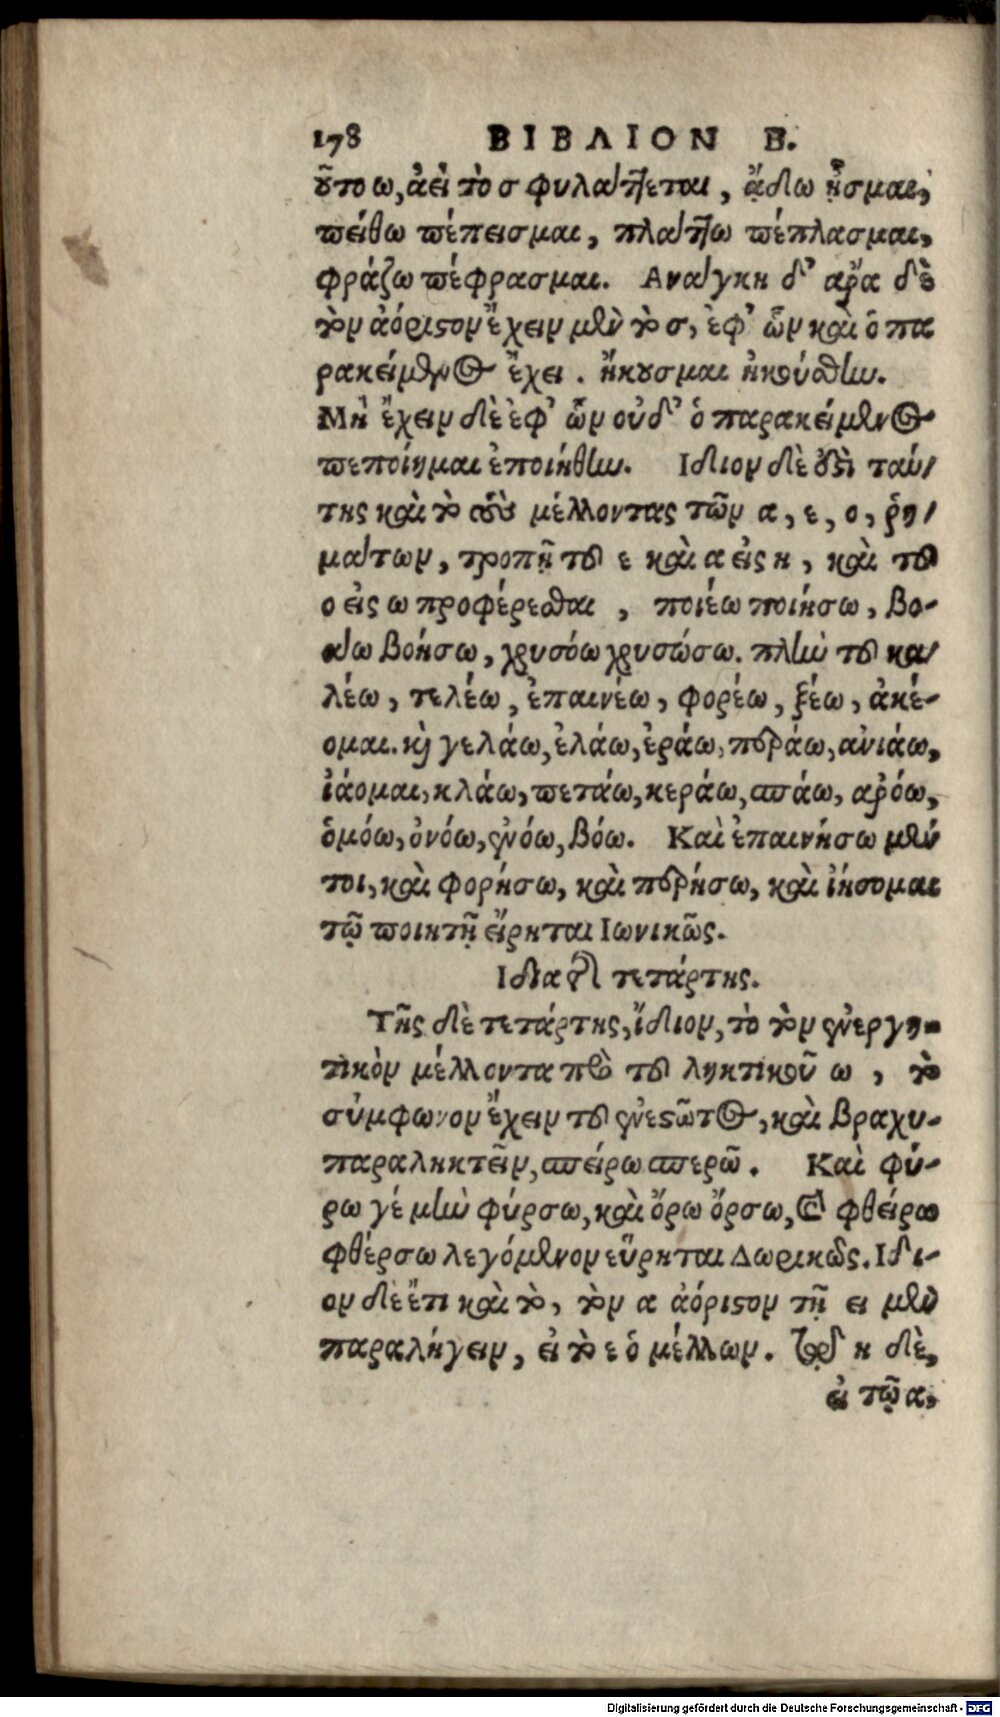 178 ΒΙΒΛΙΟΝ Β.
ȣ͂το ω, ἀεὶ τὸ σ φυλάττεται, ᾄδω ᾖσμαι,
πείθω πέπεισμαι, πλάττω πέπλασμαι,
φράζω πέφρασμαι. Ανάγκη δ' ἄρα δὲ
τὸν ἀόριϛον ἔχειν μὲν τὸ σ, ἐφ' ὧν καὶ ὁ πα
ρακείμενος ἔχει. ἤκȣσμαι ἠκούσθην.
Μὴ ἔχειν δὲ ἐφ' ὧν οὐδ' ὁ παρακείμενος
πεποίημαι ἐποιήθην. Ιδιον δὲ ἔτι ταύ/
της καὶ τὸ τοὺς μέλλοντας τῶν α, ε, ο, ῥη/
μάτων, τροπῇ τοῦ ε καὶ α εἰς η, καὶ τοῦ
ο εἰς ω προφέρεσθαι, ποιέω ποιήσω, βο-
άω βοήσω, χρυσόω χρυσώσω. πλὴν τοῦ κα/
λέω, τελέω, ἐπαινέω, φορέω, ξέω, ἀκέ-
ομαι. καὶ γελάω, ἐλάω, ἐράω, περάω, ἀνιάω,
ἰάομαι, κλάω, πετάω, κεράω, σπάω, ἀρόω,
ὁμόω, ὀνόω, ἐνόω, βόω. Καὶ ἐπαινήσω μέν
τοι, καὶ φορήσω, καὶ περήσω, καὶ ἰήσομαι
τῷ ποιητῇ εἴρηται Ιωνικῶς.
Ιδια τῆς τετάρτης.
Τῆς δὲ τετάρτης, ἴδιον, τὸ τὸν ἐνεργη-
τικὸν μέλλοντα πρὸ τοῦ ληκτικοῦ ω, τὸ
σύμφωνον ἔχειν τοῦ ἐνεϛῶτος, καὶ βραχυ-
παραληκτεῖν, σπείρω σπερῶ. Καὶ φύ-
ρω γέ μὴν φύρσω, καὶ ὄρω ὄρσω, καὶ φθείρω
φθέρσω λεγόμενον εὕρηται Δωρικῶς. Ιδι-
ον δὲ ἔτι καὶ τὸ, τὸν α ἀόριϛον τῇ ει μὲν
παραλήγειν, εἰ τὸ ε ὁ μέλλων. τῷ η δὲ,
εἰ τῷ α,
Digitalisierung gefördert durch die Deutsche Forschungsgemeinschaft - DFG